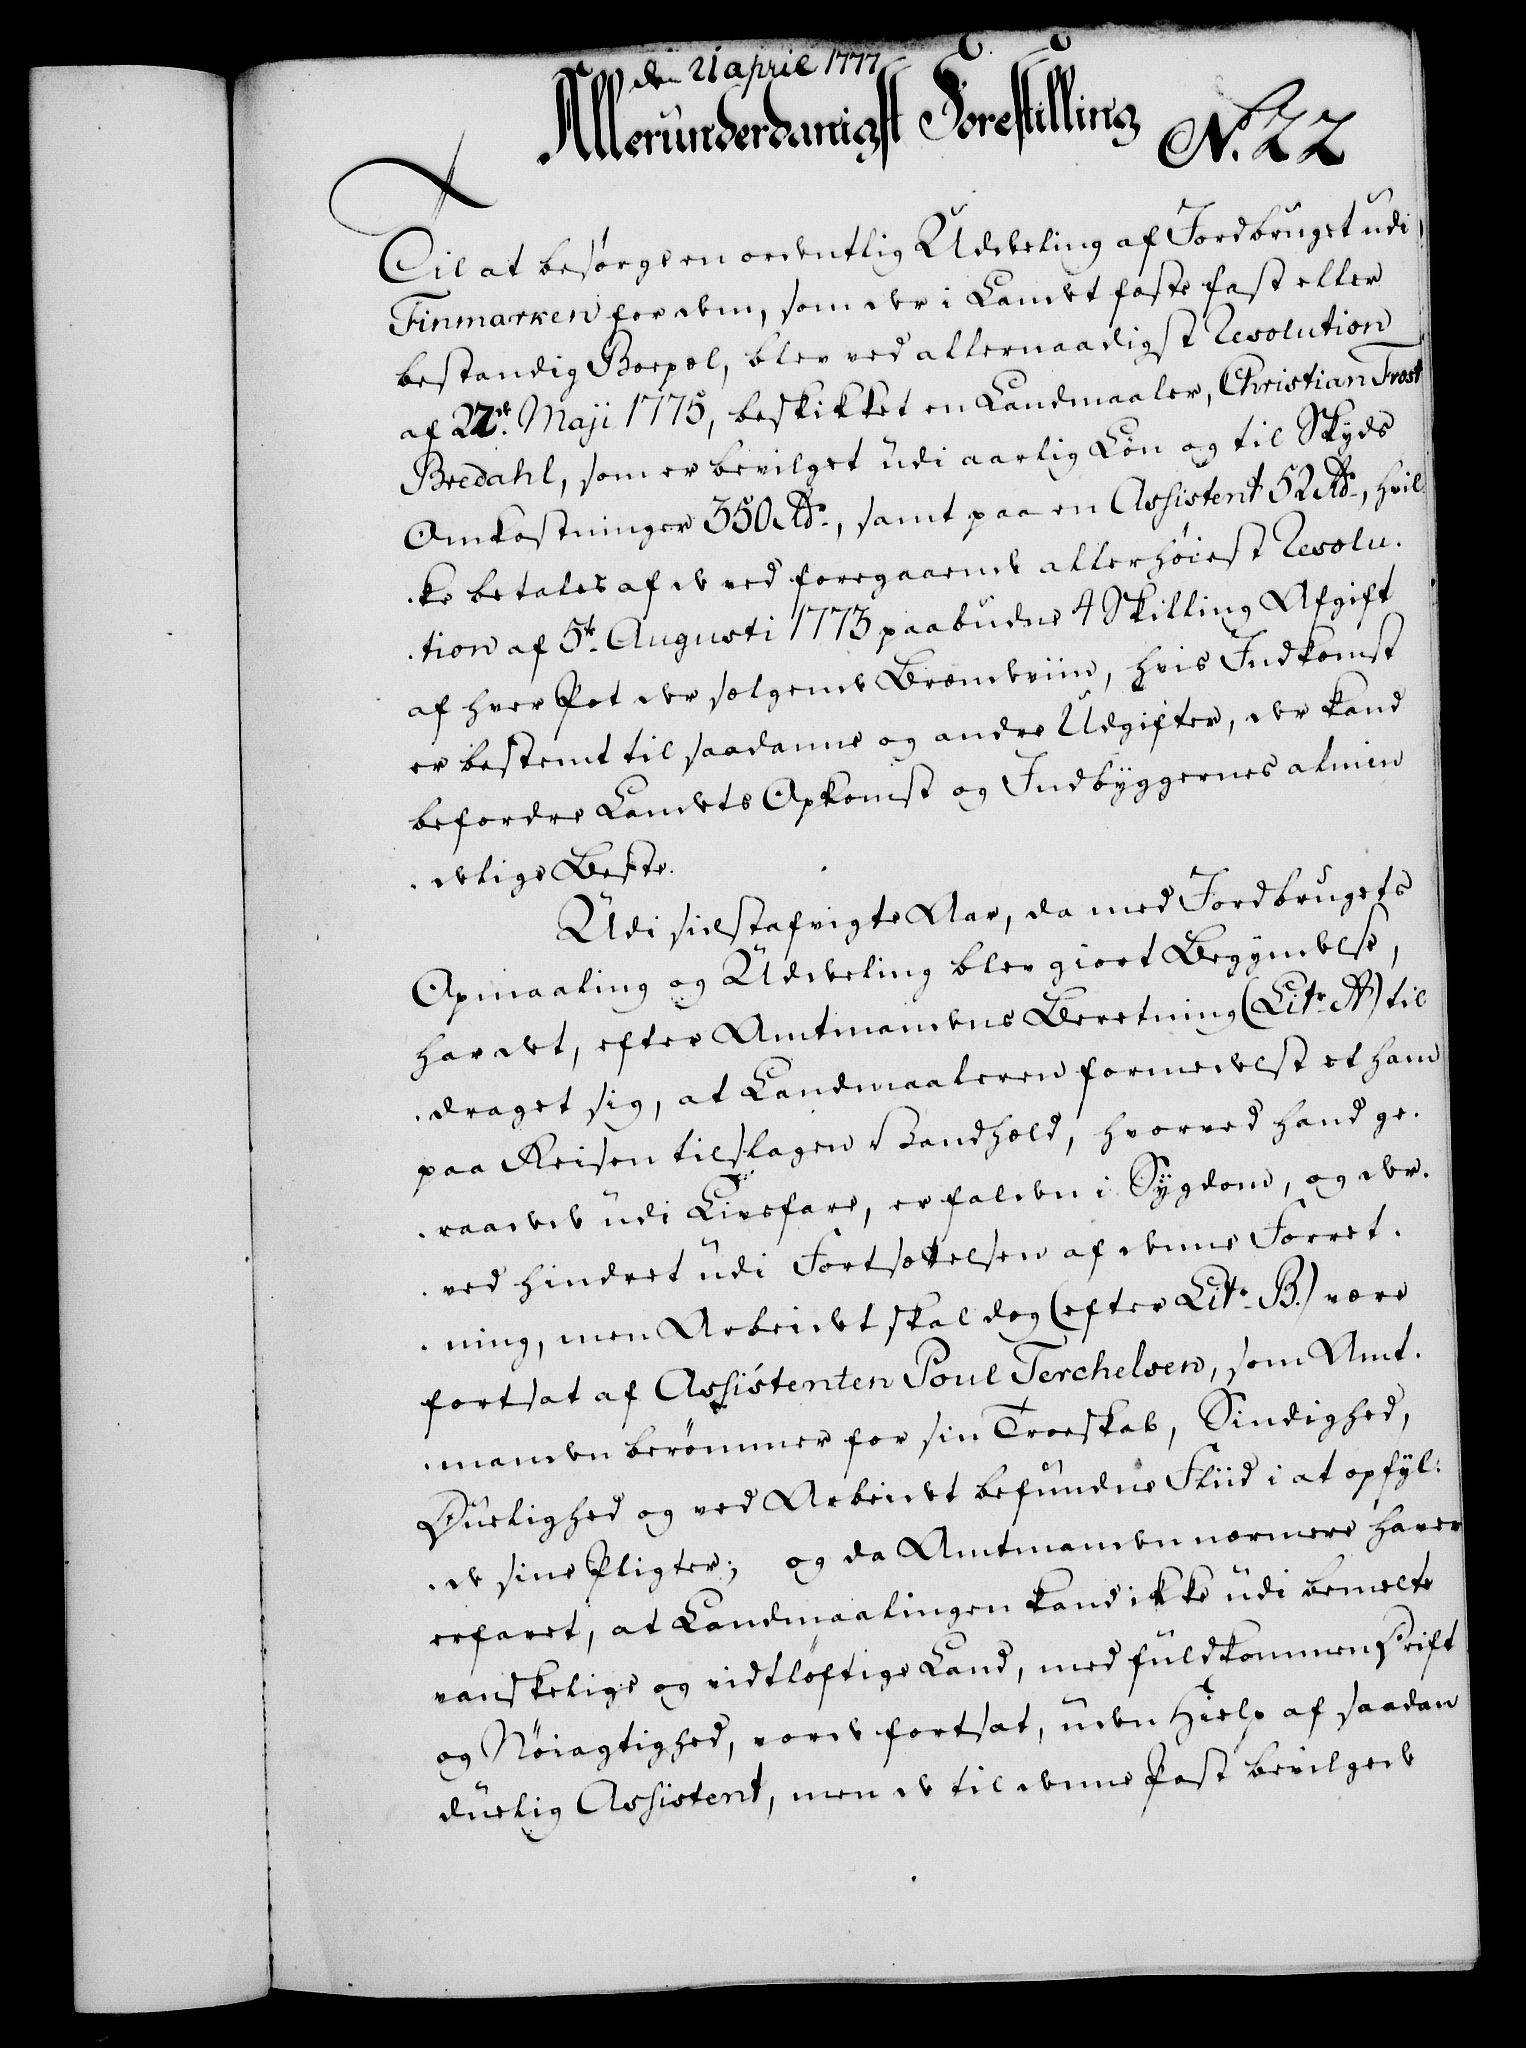 den 21 april 1777
Allerunderdanigst Forestilling
N. 22
Til at besørge en ordentlig Uddeeling af Jordbruget udi
Finmarken for dem, som der i Landet fæste fast eller
bestandig Boepæl, blev ved allernaadigst Resolution
af 22de. Maji 1775, beskikket en Landmaaler, Christian Frost
Bredahl, som er bevilget udi aarlig Løn og til Skyds
Omkostninger 350 Rdr., samt paa en Assistent 52 Rdr., hvil-
ke betales af de ved foregaaende allerhøiest Resolu-
tion af 5te. Augusti 1773 paabudne 4 Skilling Afgift
af hver Pot der sælgende Brændeviin, hvis Indkomst
er bestemt til saadanne og andre Udgifter, der kand
befordre Landets Opkomst og Indbyggernes almin
delige Beste.
Udi sidstafvigte Aar, da med Jordbrugets
Opmaaling og Uddeeling blev giort Begyndelse,
har det, efter Amtmandens Beretning (Litr. A) til
draget sig, at Landmaaleren formedelst et ham
paa Reisen tilslagen Vandhæld, hvorved hand ge-
raadede udi Livsfare, er falden i Sygdom, og der-
ved hindret udi Fortsættelsen af denne Forret-
ning, men Arbeidet skal dog (efter Litr. B.) være
fortsat af Assistenten Poul Terchelsen, som Amt-
manden berømmer for sin Troeskab, Sindighed,
Duelighed og ved Arbeidet befundne Fliid i at opfyl-
de sine Pligter; og da Amtmanden nærmere haver
erfaret, at Landmaalingen kand ikke udi bemelte
vanskelige og vidtløftige Land, med fuldkommen Drift
og Nøiagtighed, vorde fortsat, uden Hielp af saadan
duelig Assistent, men de til denne Post bevilgede